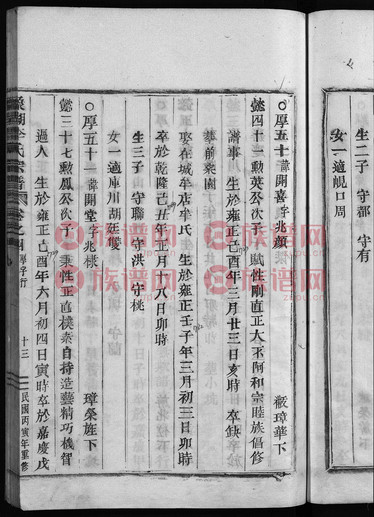 生二子 守都 守有
女一適覞口周
○厚五十諱開喜字兆顏 璋華下
懿四十一勲英公次子 賦性剛直正大不阿和宗睦族倡修
譜事 生於雍正己酉年三月廿三日亥時 卒缺
娶在城牟店牟氏 生於雍正壬子年三月初三日卯時
華前菜園
卒於乾隆己丑年正月十八日卯時
生三子 守聯 守洪 守桃
女一 適庫川胡廷儍
○厚五十一諱開堂字兆樣 璋榮旌下
懿三十七勲鳳公次子 秉性正直樸素自持造藝精巧機智
過人 生於雍正己酉年六月初四日寅時卒於嘉慶戊
李氏宗譜 卷之四 厚字行 十三 民國丙寅年重修
族谱网
www.zupu.cn